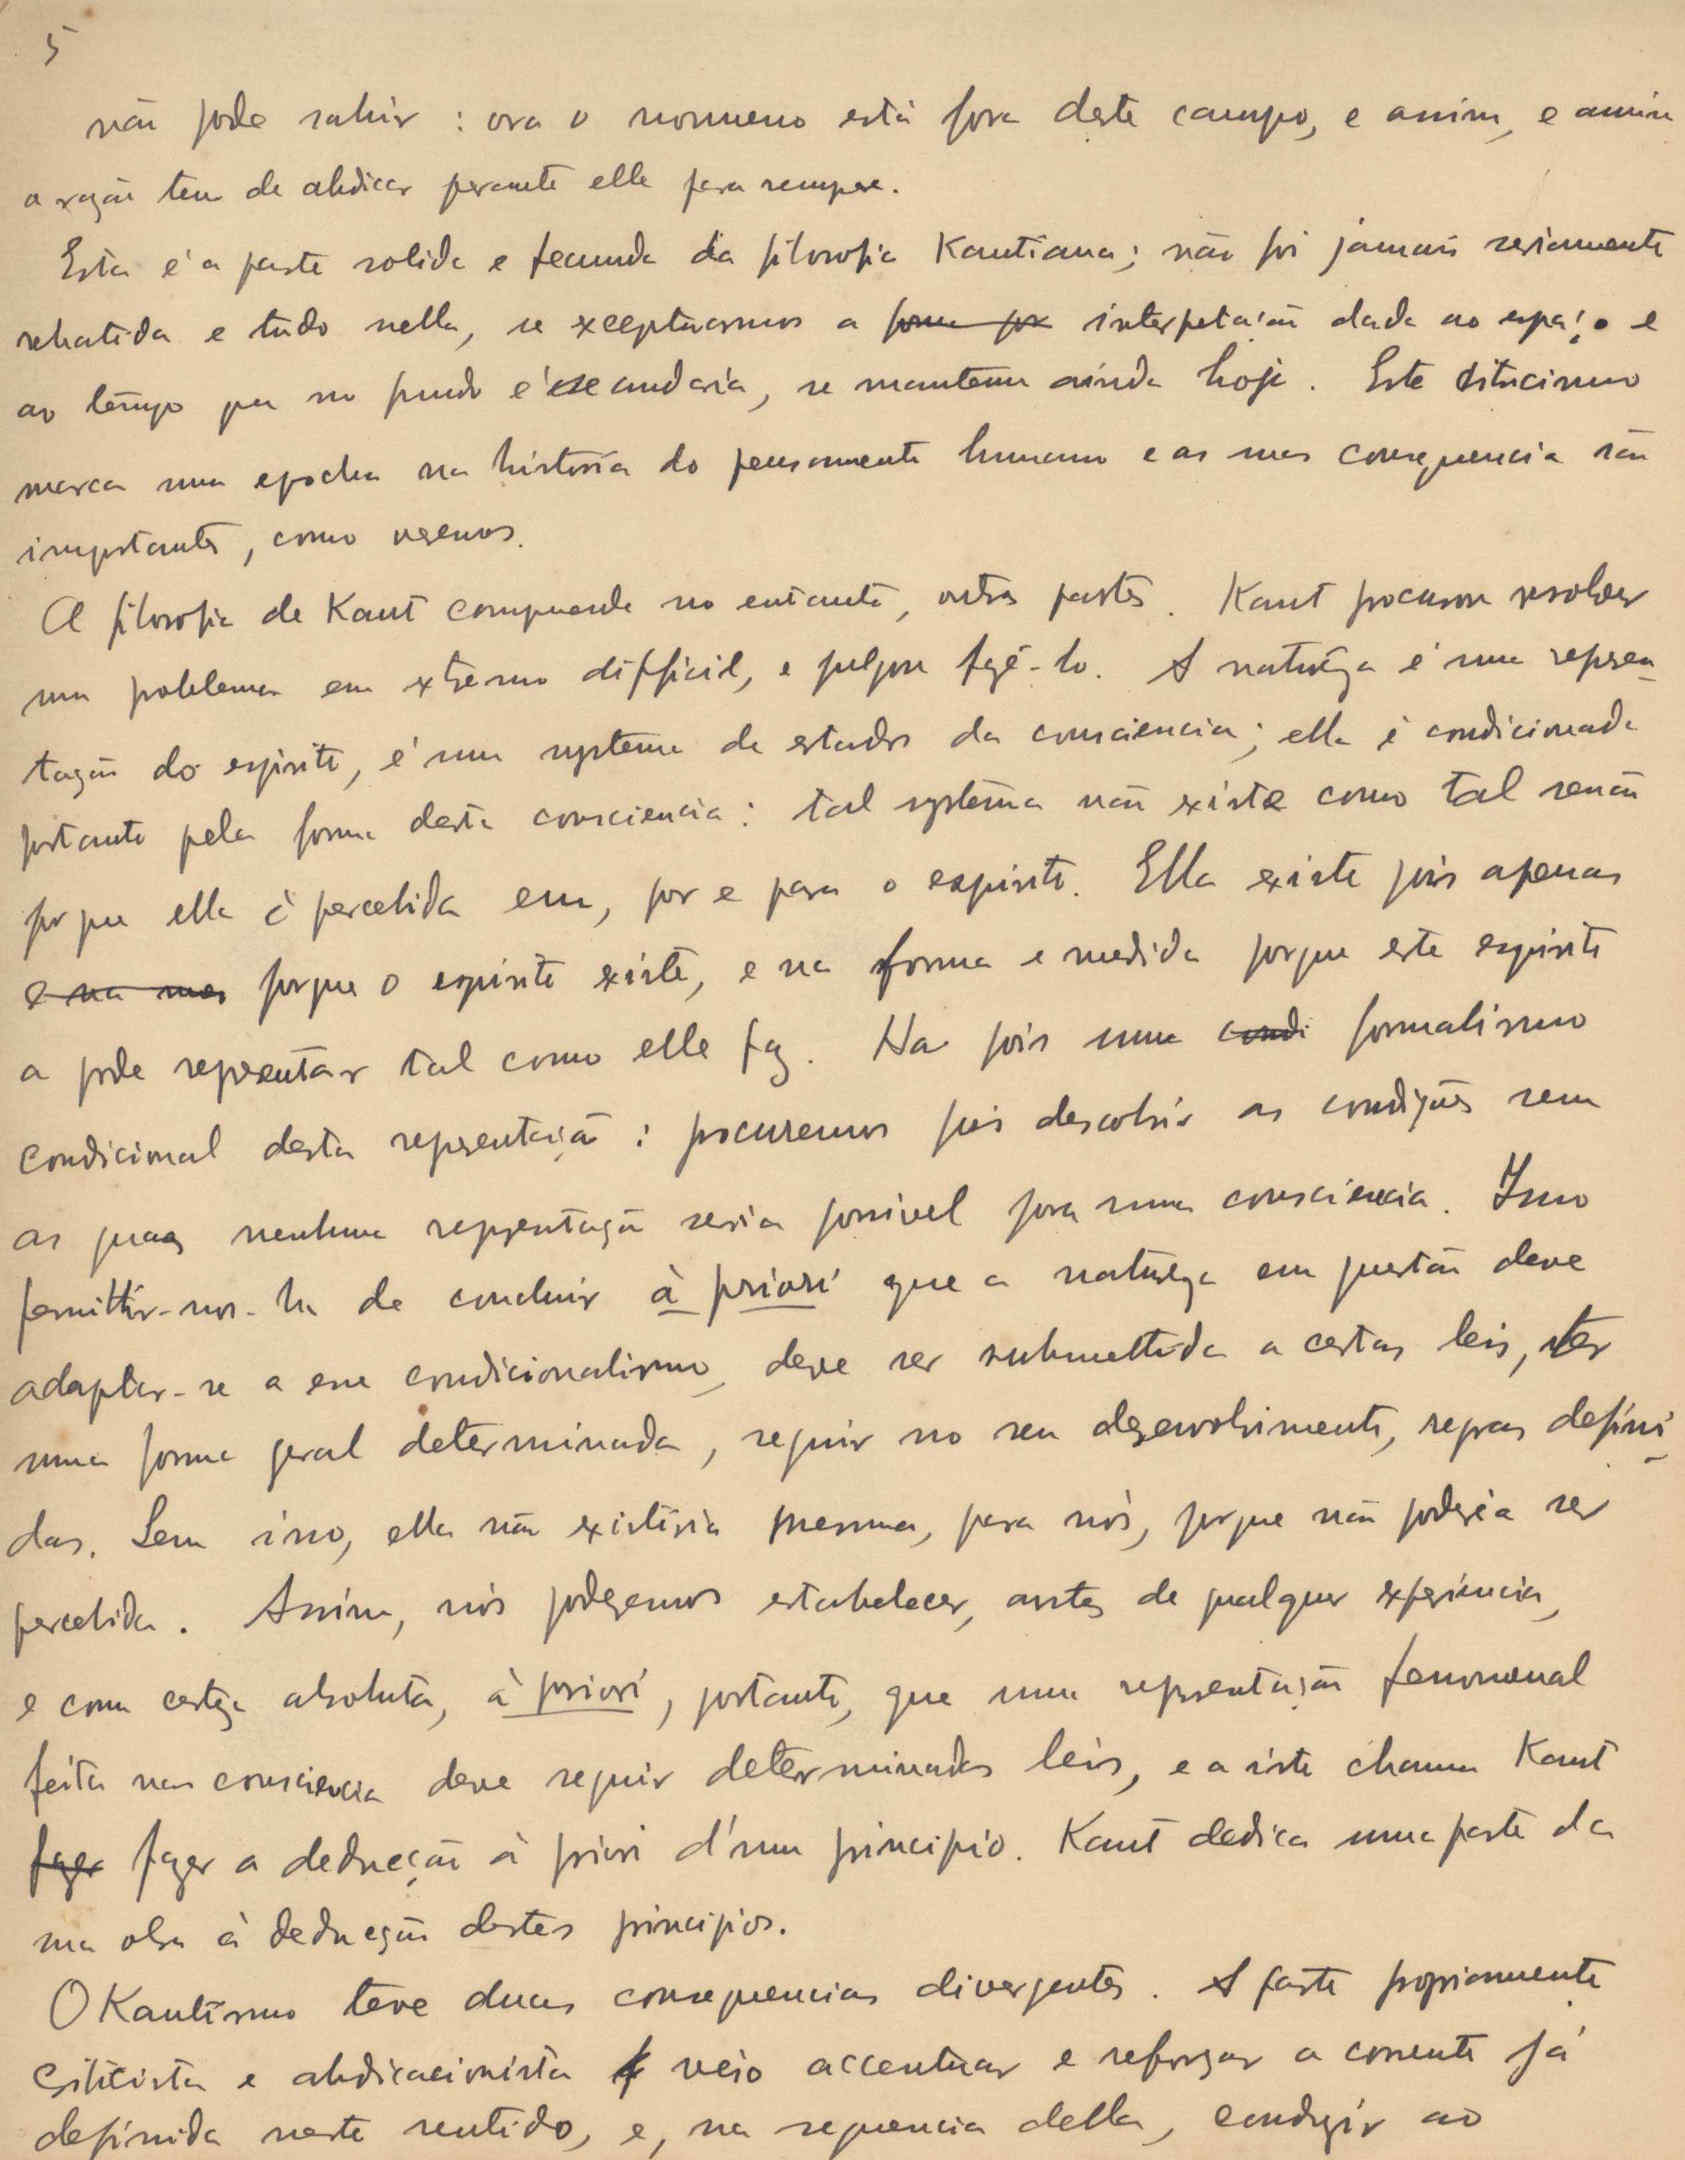 5
não pode sahir : ora o noumeno está fora deste campo, e assim, e assim
a razão tem de abdicar perante elle para sempre.
Esta é a parte solida e fecunda da filosofia Kantiana; não foi jamais seriamente
rebatida e tudo nella, se exceptuarmos a interpetação dada ao espaço e
ao tempo que no fundo é secundaria, se mantem ainda hoje. Este criticismo
marca uma epocha na historia do pensamento humano e as suas consequencia são
importantes, como veremos.
A filosofia de Kant comprende no entanto, outras partes. Kant procurou resolver
um problema em extremo difficil, e julgou fazê-lo. A natureza é uma represen-
tação do espirito, é um systema de estados da consciencia; ella é condicionada
portanto pela forma desta consciencia: tal systema não existe como tal senão
porque elle é percebida em, por e para o espirito. Ella existe pois apenas
e na mes porque o espirito existe, e na forma e medida porque este espirito
a pode representar tal como elle faz. Ha pois um condi formalismo
condicional desta representação : procuremos pois descobrir as condições sem
as quaes nenhuma representação seria possivel para uma consciencia. Isso
permittir-nos-ha de concluir à priori que a natureza em questão deve
adaptar-se a esse condicionalismo, deve ser submettida a certas leis, ter
uma forma geral determinada, seguir no seu dezenvolvimento, regras defini-
das. Sem isso, ella não existiria mesma, para nós, porque não poderia ser
percebida. Assim, nós poderemos estabelecer, antes de qualquer experiencia,
e com certeza absoluta, à priori, portanto, que uma representação fenomenal
feita na consciencia deve seguir determinadas leis, e a isto chama Kant
fazer fazer a deducção à priori d'um principio. Kant dedica uma parte da
sua obra à deducção destes principios.
O Kantismo teve duas consequencias divergentes. A parte propriamente
criticista e abdicacionista veio accentuar e reforçar a corrente já
definida neste sentido, e, na sequencia della, conduzir ao